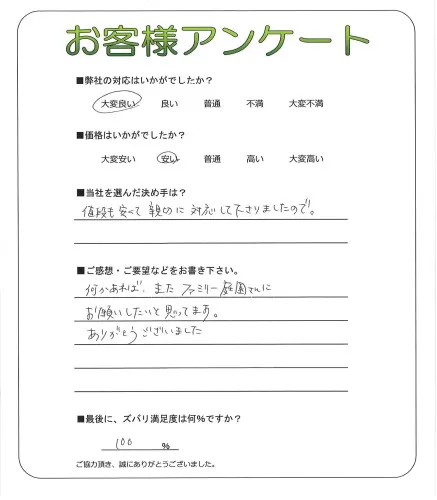 お客様アンケート
■弊社の対応はいかがでしたか？
大変良い 良い 普通 不満 大変不満
■価格はいかがでしたか？
大変安い 安い 普通 高い 大変高い
■当社を選んだ決め手は？
値段も安くて親切に対応して下さりましたので。
■ご感想・ご要望などをお書き下さい。
何かあれば、また ファミリー庭園さんに
お願いしたいと思ってます。
ありがとうございました
■最後に、ズバリ満足度は何％ですか？
100 ％
ご協力頂き、誠にありがとうございました。